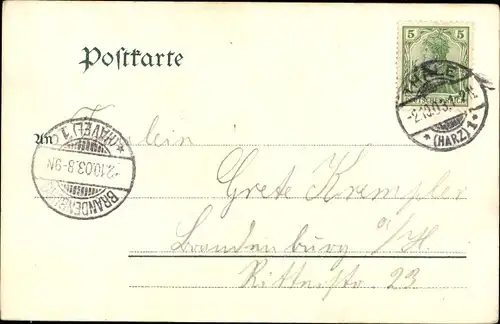 5
Postkarte
THALE
DEUTSCHES REICH
-2.10.03.
* (HARZ) 1 *
An
* (HAVEL) 1
-2.10.03.8-9N
BRANDENBURG
Fräulein
Grete Krempler
Brandenburg a/H.
Ritterstr. 23